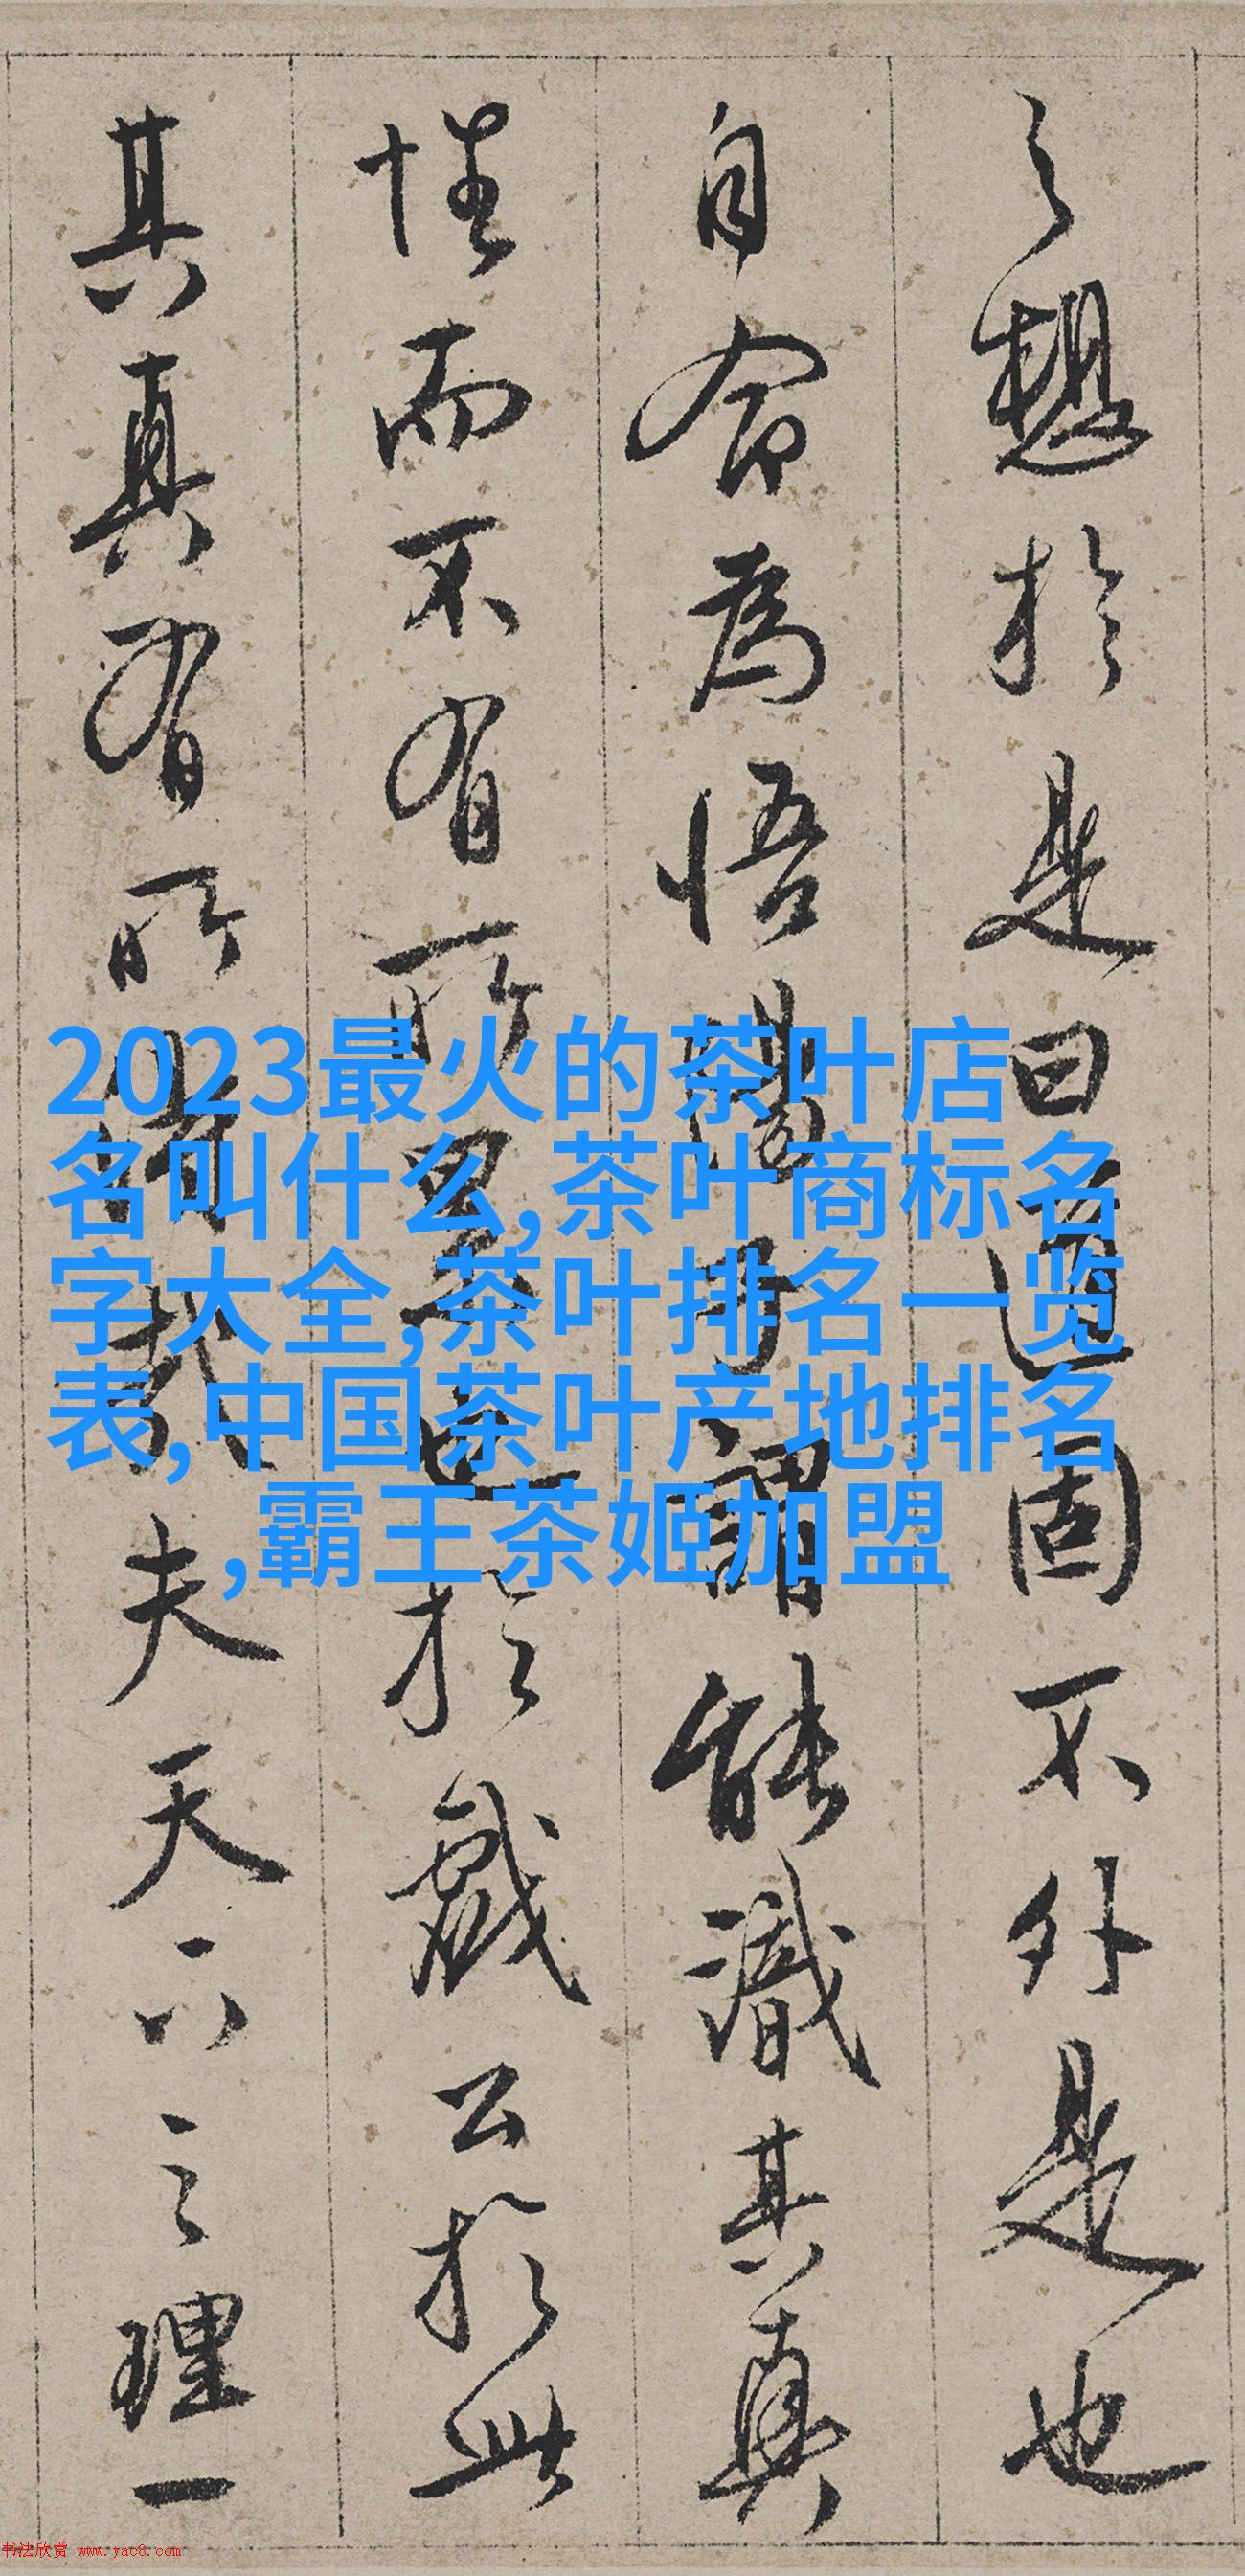 之想於是曰道固不外是也
自命為悟謂能識其真
性而不有所於戲公於此
其真有所哉夫天下之理一
2023最火的茶叶店
名叫什么,茶叶商标名
字大全,茶叶排名一览
表,中国茶叶产地排名
,霸王茶姬加盟
书法欣赏 www.yac8.com